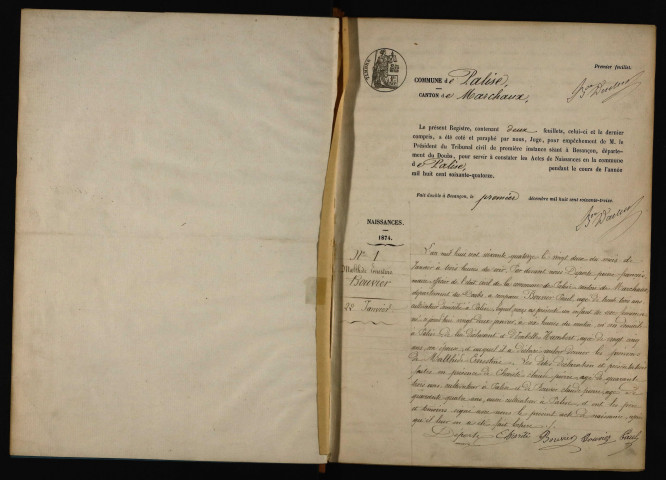 Premier feuillet.
COMMUNE de Palise,
CANTON de Marchaux,
Le présent Registre, contenant deux feuillets, celui-ci et le dernier
compris, a été coté et paraphé par nous, Juge, pour empêchement de M. le
Président du Tribunal civil de première instance séant à Besançon, départe-
ment du Doubs, pour servir à constater les Actes de Naissances en la commune
de Palise, pendant le cours de l'année
mil huit cent soixante-quatorze.
Fait double à Besançon, le premier décembre mil huit cent soixante-treize.
NAISSANCES.
1874.
No 1
Mathilde Ernestine
Bouvier
22 Janvier
L'an mil huit cent soixante quatorze le vingt deux du mois de
Janvier à trois heures du soir, Par devant nous Deporte pierre françois
maire officier de l'état civil de la commune de Palise canton de Marchaux
département du Doubs a comparu Bouvier Paul, age de trente trois ans
cultivateur domicilié à Palise, lequel nous a présenté un enfant du sexe féminin
né aujourd'hui vingt deux janvier, à six heures du matin, en son domicile
à Palise, de lui Déclarant et d'Isabelle Humbert, agée de vingt cinq
ans son épouse, et auquel il a Déclaré vouloir donner les prénoms
de Mathilde Ernestine. Les dites déclaration et présentation
faites en présence de claude pierre, agé de quarante
trois ans, cultivateur à Palise et de Bouvier claude pierre, agé de
quarante quatre ans, aussi cultivateur à Palise, et ont les père
et témoins signé avec nous le présent acte de naissance, après
que il leur en a été fait lecture.
Deporte Bouvier Bouvier Paul